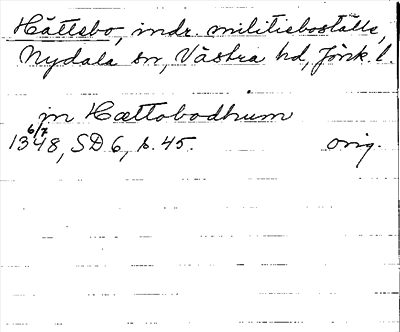 Hättsbo, indr. militieboställe,
Nydala sn, Västra hd, Jönk. l.
in Hættobodhum
1348 6/7, SD 6, s. 45. orig.